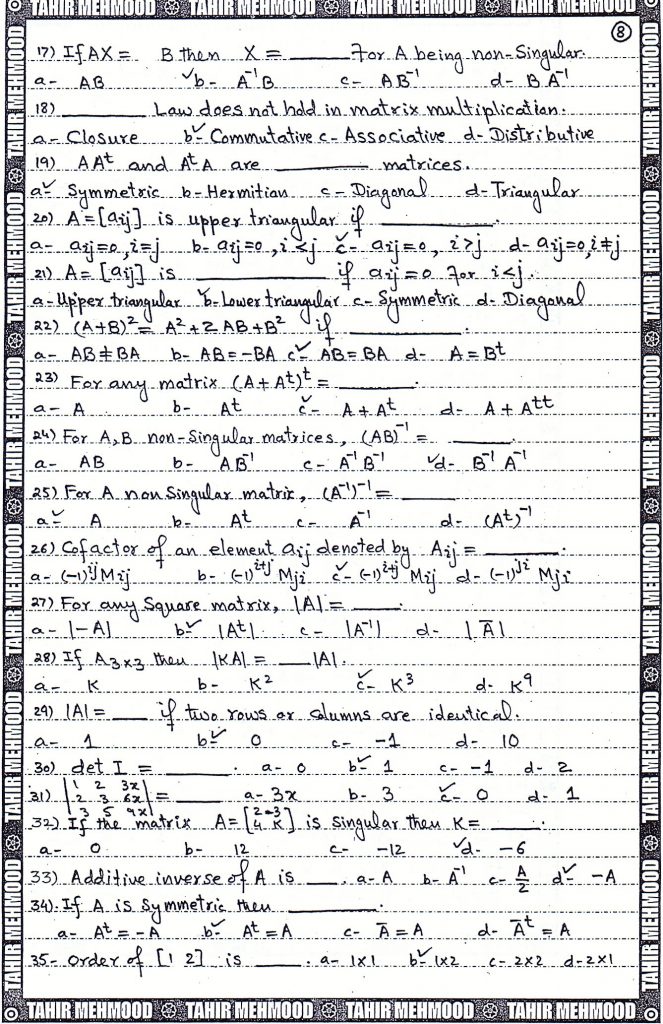 TAHIR MEHMOOD TAHIR MEHMOOD TAHIR MEHMOOD TAHIR MEHMOOD
8
17) If AX = B then X = ______ For A being non-Singular.
a- AB ✓b- A⁻¹B c- AB⁻¹ d- BA⁻¹
18) ______ Law does not hold in matrix multiplication.
a- Closure b✓- Commutative c- Associative d- Distributive
19) AAᵗ and AᵗA are ______ matrices.
a✓- Symmetric b- Hermitian c- Diagonal d- Triangular
20) A=[aij] is upper triangular if ______.
a- aij=0, i=j b- aij=0, i<j ✓c- aij=0, i>j d- aij=0, i≠j
21) A=[aij] is ______ if aij=0 For i<j.
a- Upper triangular ✓b- Lower triangular c- Symmetric d- Diagonal
22) (A+B)² = A²+2AB+B² if ______.
a- AB≠BA b- AB=-BA c✓- AB=BA d- A=Bᵗ
23) For any matrix (A+Aᵗ)ᵗ = ______.
a- A b- Aᵗ ✓c- A+Aᵗ d- A+Aᵗᵗ
24) For A,B non-Singular matrices, (AB)⁻¹ = ______
a- AB b- AB⁻¹ c- A⁻¹B⁻¹ ✓d- B⁻¹A⁻¹
25) For A non Singular matrix, (A⁻¹)⁻¹ = ______
a✓- A b- Aᵗ c- A⁻¹ d- (Aᵗ)⁻¹
26) Cofactor of an element aij denoted by Aij = ______.
a- (-1)ⁱʲMij b- (-1)ⁱ⁺ʲMji ✓c- (-1)ⁱ⁺ʲMij d- (-1)ʲⁱMji
27) For any Square matrix, |A| = ______.
a- |-A| b✓- |Aᵗ| c- |A⁻¹| d- |Ā|
28) If A₃ₓ₃ then |KA| = ___|A|.
a- K b- K² ✓c- K³ d- K⁹
29) |A| = ___ if two rows or columns are identical.
a- 1 b✓- 0 c- -1 d- 10
30) det I = ______. a- 0 b✓- 1 c- -1 d- 2
31) |1 2 3x|
|2 3 6x| = ______ a- 3x b- 3 ✓c- 0 d- 1
|3 5 9x|
32) If the matrix A=[2 -3; 4 K] is singular then K = ______.
a- 0 b- 12 c- -12 ✓d- -6
33) Additive inverse of A is ___. a- A b- A⁻¹ c- A/2 d✓- -A
34). If A is Symmetric then ______.
a- Aᵗ=-A b✓- Aᵗ=A c- Ā=A d- Āᵗ=A
35- order of [1 2] is ______. a- 1x1 b✓- 1x2 c- 2x2 d- 2x1
TAHIR MEHMOOD TAHIR MEHMOOD TAHIR MEHMOOD TAHIR MEHMOOD
TAHIR MEHMOOD TAHIR MEHMOOD TAHIR MEHMOOD TAHIR MEHMOOD TAHIR MEHMOOD TAHIR MEHMOOD
TAHIR MEHMOOD TAHIR MEHMOOD TAHIR MEHMOOD TAHIR MEHMOOD TAHIR MEHMOOD TAHIR MEHMOOD